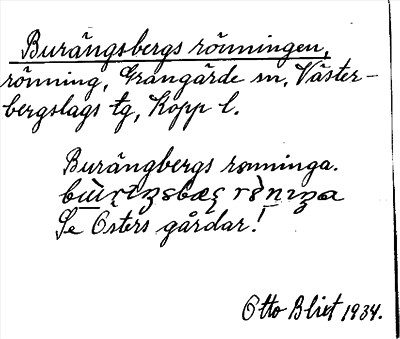 Burängsbergs rönningen,
rönning, Grangärde sn, Väster-
bergslags tg, Kopp l.
Burängbergs rønninga.
Se Osters gårdar!
Otto Blixt 1934.